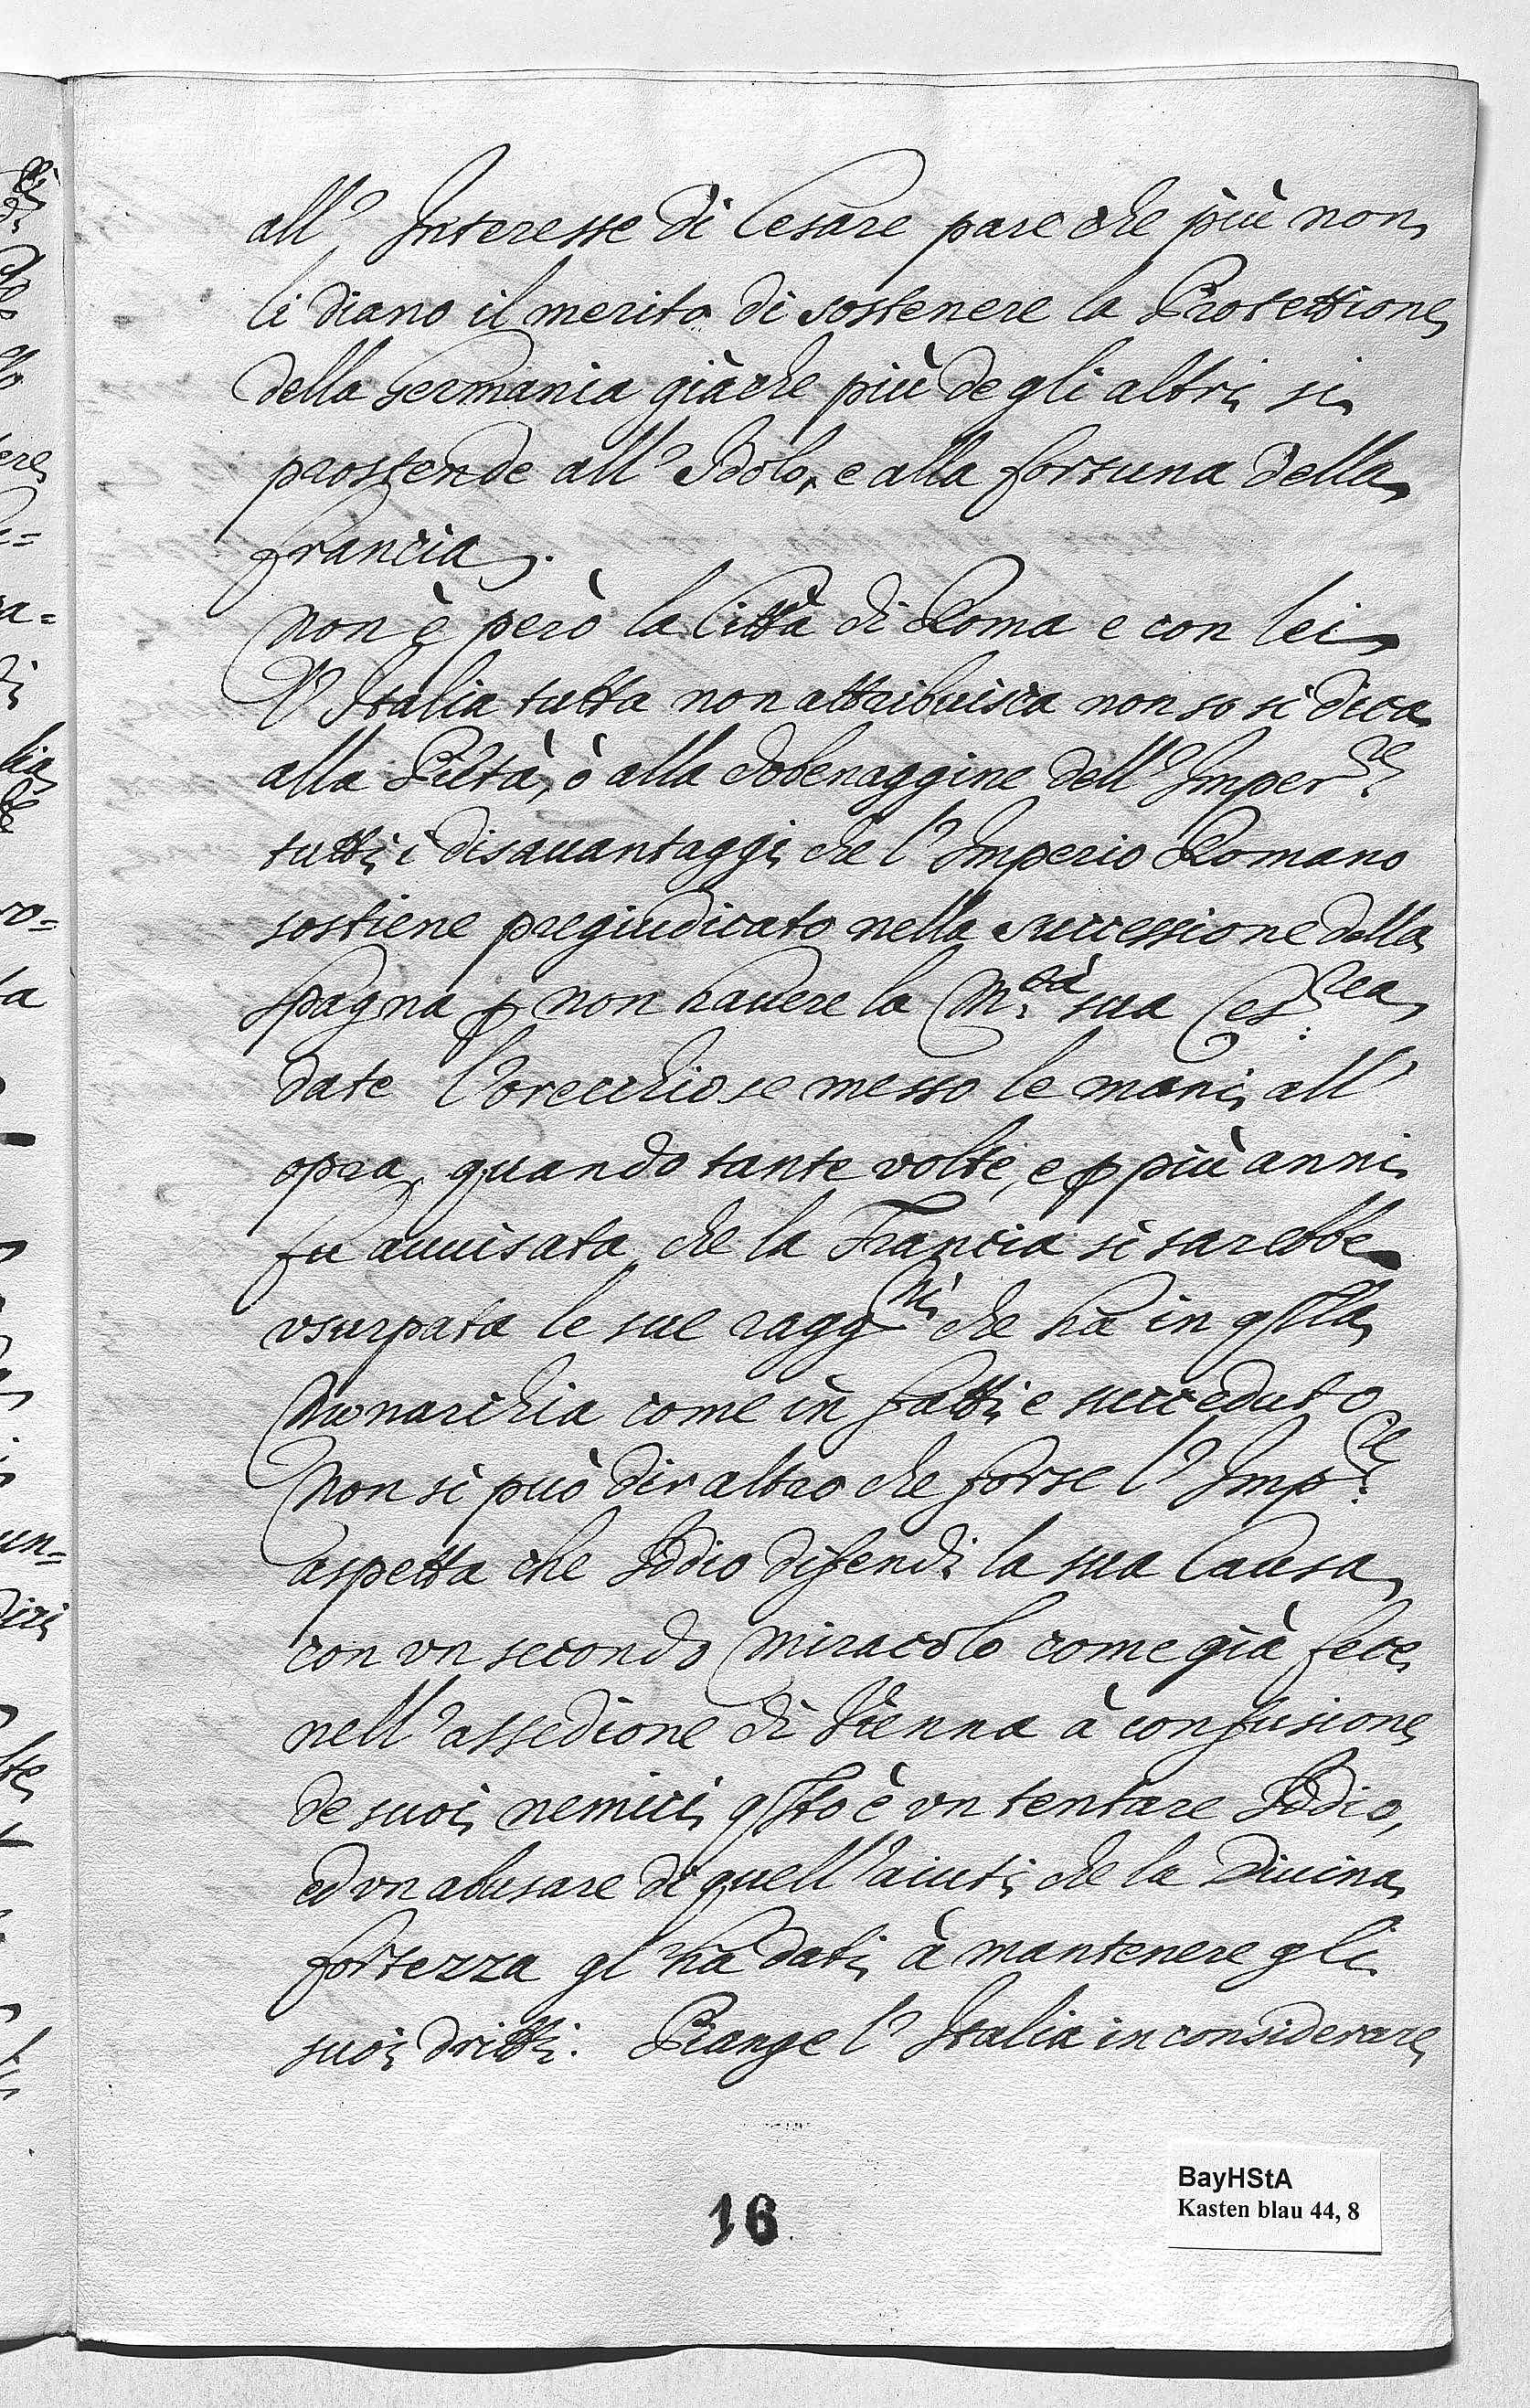 all' Interesse di Cesare pare che più non
li diano il merito di sostenere la Protettione
della Germania giàche più degli altri si
prostende all' Idolo, e alla fortuna della
francia.
Non è però la Città di Roma e con lei
l' Italia tutta non attribuisca non so si dica
alla Pietà, ò alla dobenaggine dell' Imper.re
tutti i disauantaggi che l' Imperio Romano
sostiene pregiudicato nella successione della
spagna p non hauere la M.tà sua Ces.rea
date l'orecchio se messo le mani all'
opra, quando tante volte, e p più anni
fu auuisata che la Francia si sarebbe
vsurpata le sue ragg.ni che hà in qlla
Monarchia come in fatti e succeduto
Non si può dir altro che forse l' Imp.re
aspetta che Iddio difendi la sua Causa
con vn secondo Miracolo come già fece
nell' assedione di Vienna à confusione
de suoi nemici, qsto è vn tentare Iddio,
ed vn abusare di quell' aiuti che la Diuina
fortezza gl' hà dati à mantenere gli
suoi dritti. Piange l' Italia in considerare
16
BayHStA
Kasten blau 44, 8